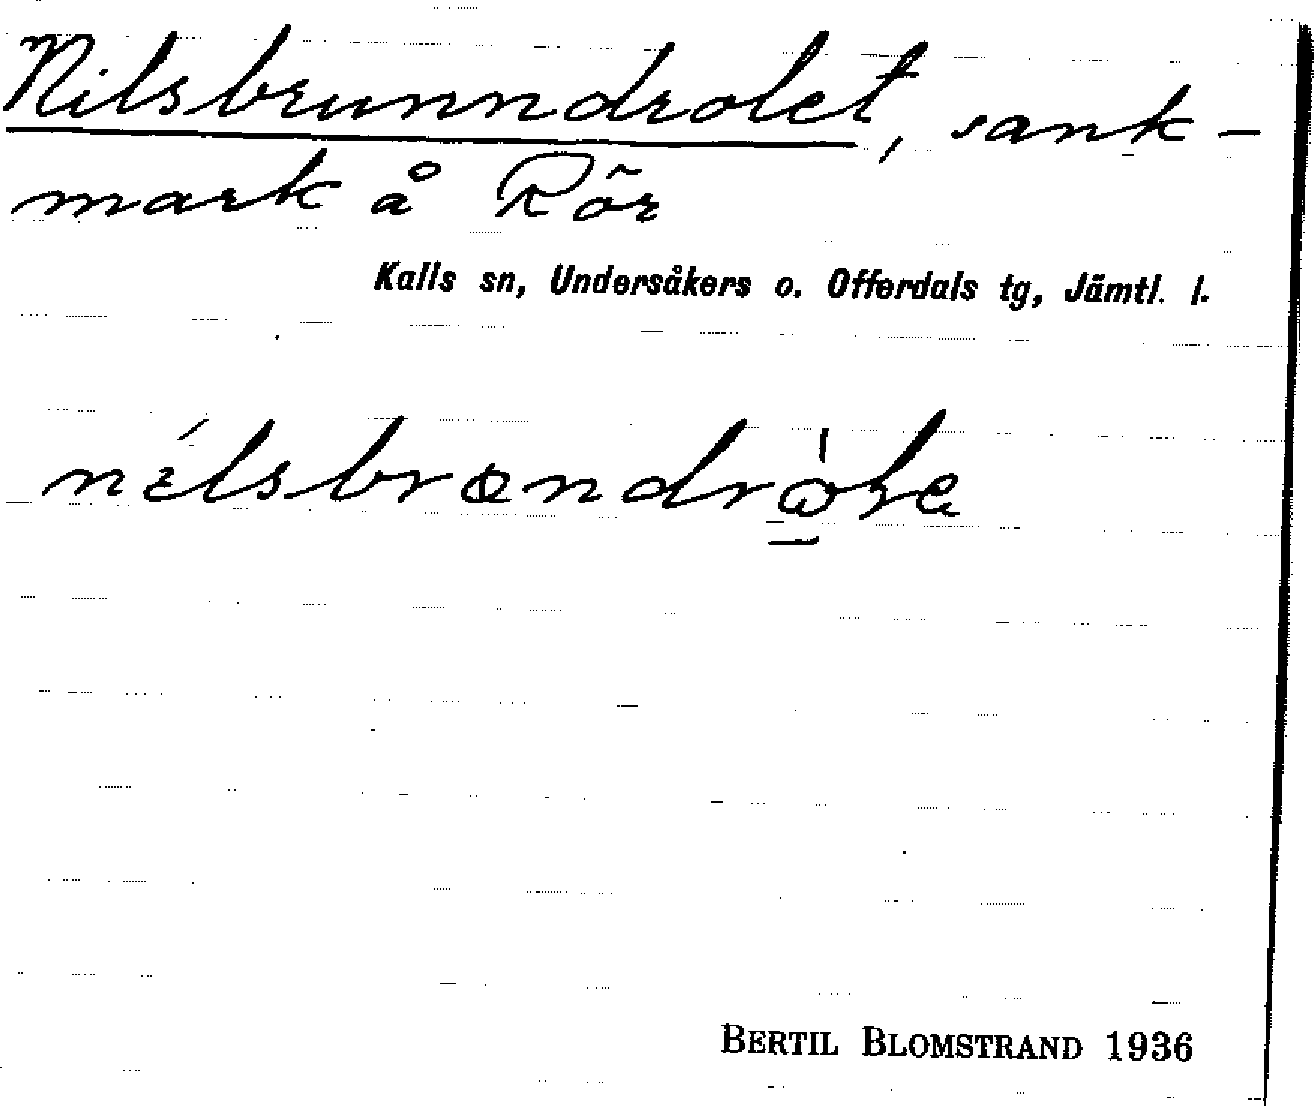 Nilsbrunndrolet, sank-
mark å Rör
Kalls sn, Undersåkers o. Offerdals tg, Jämtl. l.
BERTIL BLOMSTRAND 1936